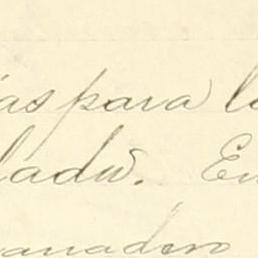 as para l
ladu. En
anadero